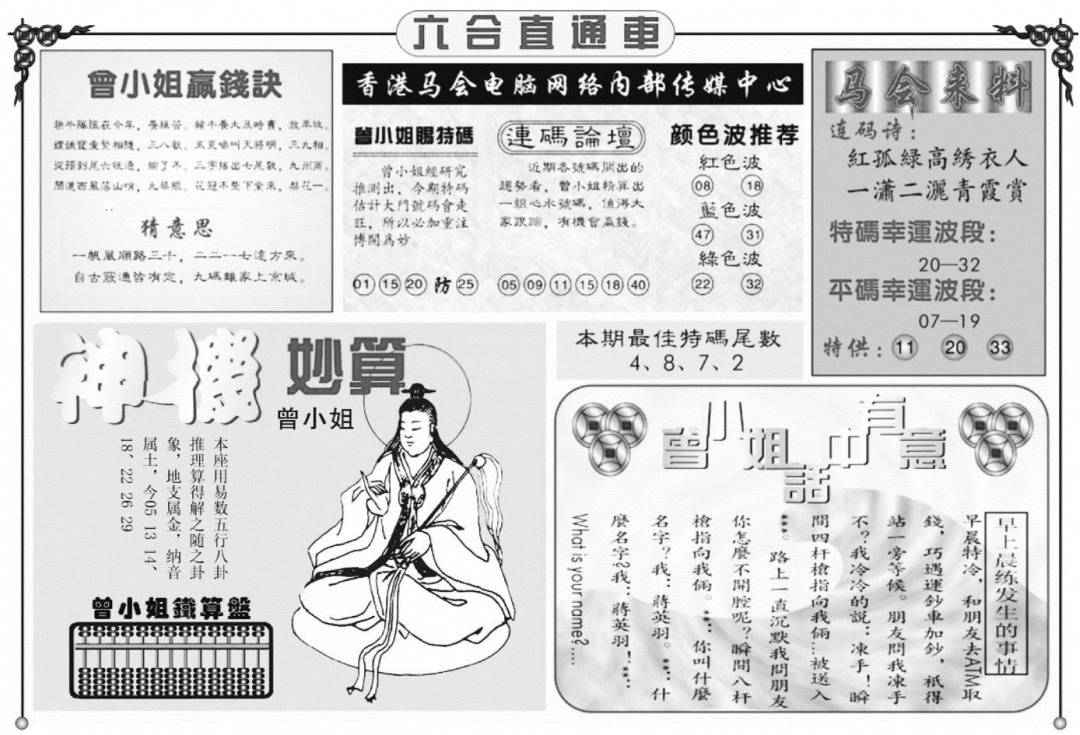 六合直通車
曾小姐贏錢訣
猜意思
一帆風順路三千，二二一七遠方來。
自古窮通皆有定，九碼離家上京城。
香港马会电脑网络内部传媒中心
曾小姐賜特碼
曾小姐經研究
推測出，今期特碼
估計大門號碼會走
旺，所以必加重注
博開爲妙。
01 15 20 防 25
連碼論壇
近期各號碼開出的
趨勢看，曾小姐精算出
一組心水號碼，值得大
家跟踪，有機會贏錢。
05 09 11 15 18 40
颜色波推荐
紅色波
08 18
藍色波
47 31
綠色波
22 32
马会来料
连码诗：
紅孤緑高綉衣人
一瀟二灑青霞賞
特碼幸運波段：
20—32
平碼幸運波段：
07—19
特供：11 20 33
本期最佳特碼尾數
4、8、7、2
神機妙算
曾小姐
本座用易数五行八卦
推理算得解之随之卦
象，地支属金，纳音
属土，今05 13 14、
18、22 26 29
曾小姐鐵算盤
曾小姐話中有意
早上晨练发生的事情
早晨特冷，和朋友去ATM取
錢，巧遇運鈔車加鈔，祇得
站一旁等候。朋友問我凍手
不？我冷冷的説：凍手！瞬
間四杆槍指向我倆…被送入
***。路上一直沉默我問朋友
你怎麼不開腔呢？瞬間八杆
槍指向我倆。**：你叫什麼
名字？我：蔣英羽。**：什
麼名字？我：蔣英羽！**：
What is your name?....